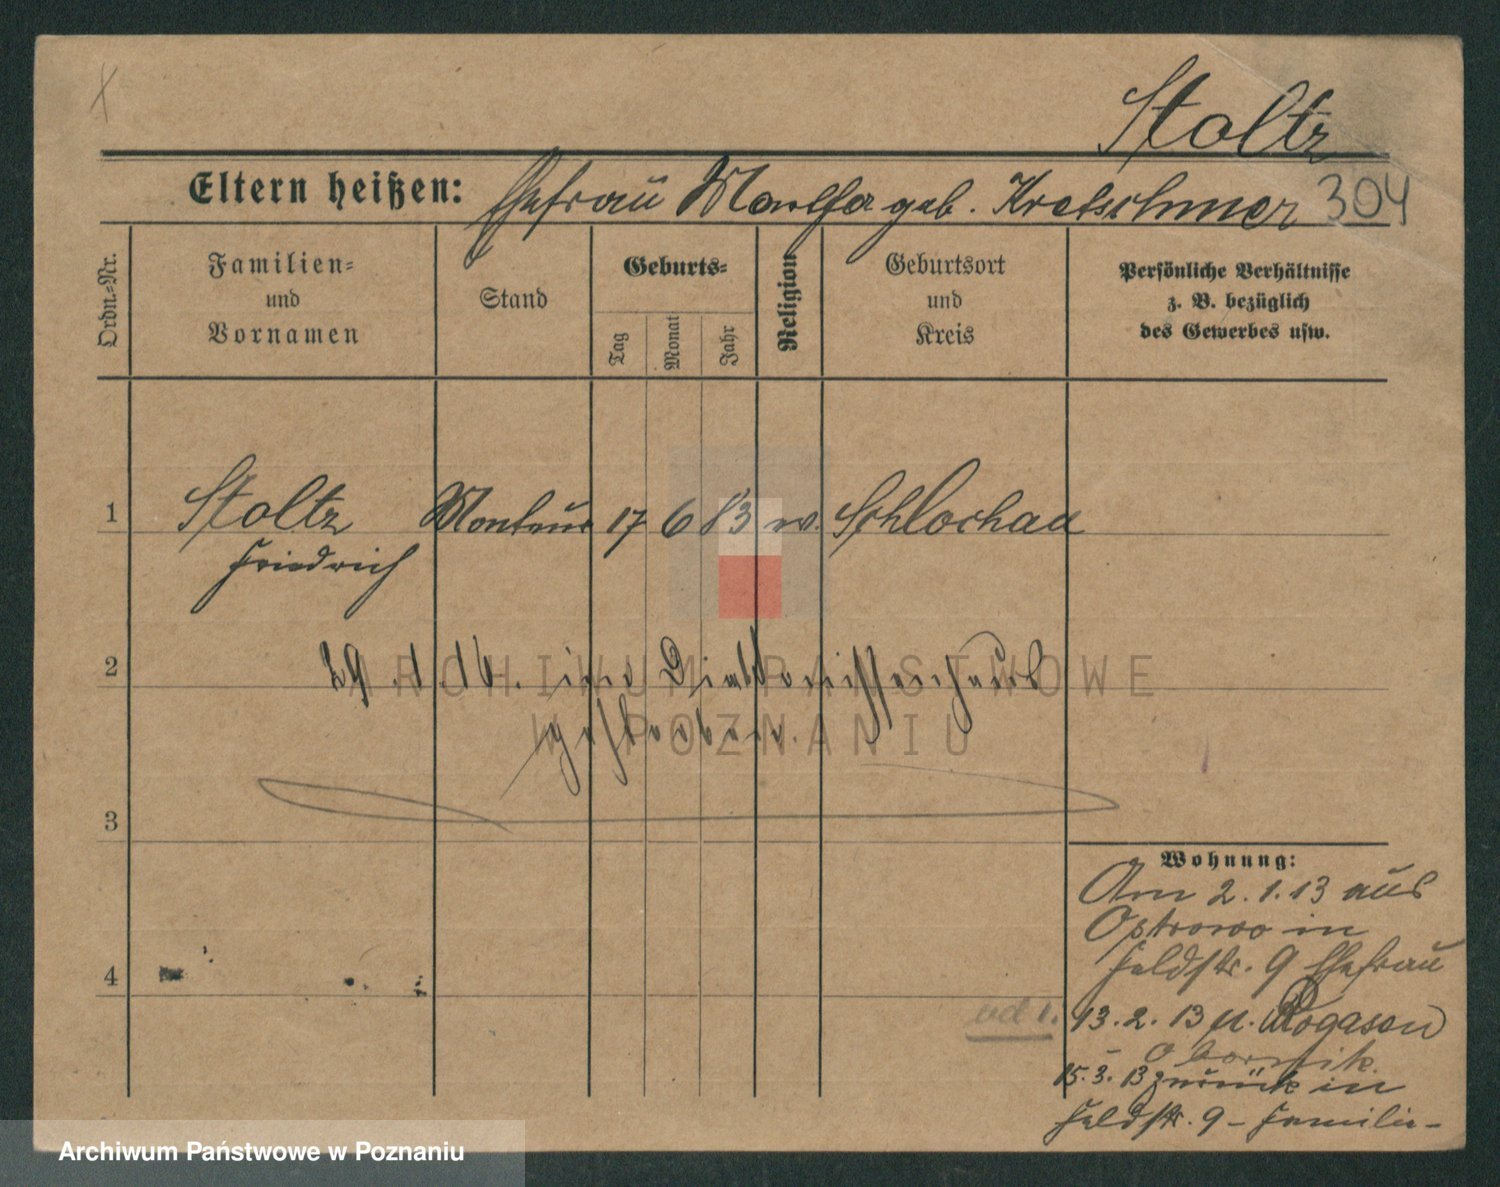 Stoltz
Eltern heißen: Ehefrau Martha geb. Kretschmer 304
Ordn.-Nr.
Familien-
und
Vornamen
Stand
Geburts-
Tag
Monat
Jahr
Religion
Geburtsort
und
Kreis
Persönliche Verhältnisse
z. B. bezüglich
des Gewerbes usw.
1 Stoltz Monteur 17 6 83 ev. Schlochau
Friedrich
2
ARCHIWUM PAŃSTWOWE
W POZNANIU
29 Diakonissenhaus
gestorben.
3
4
Wohnung:
Am 2.1.13 aus
Ostrowo in
Feldstr. 9 Ehefrau
13.2.13 n. Rogasen
Obornik
15.3.13 zurück in
Feldstr. 9 - Familie -
Archiwum Państwowe w Poznaniu